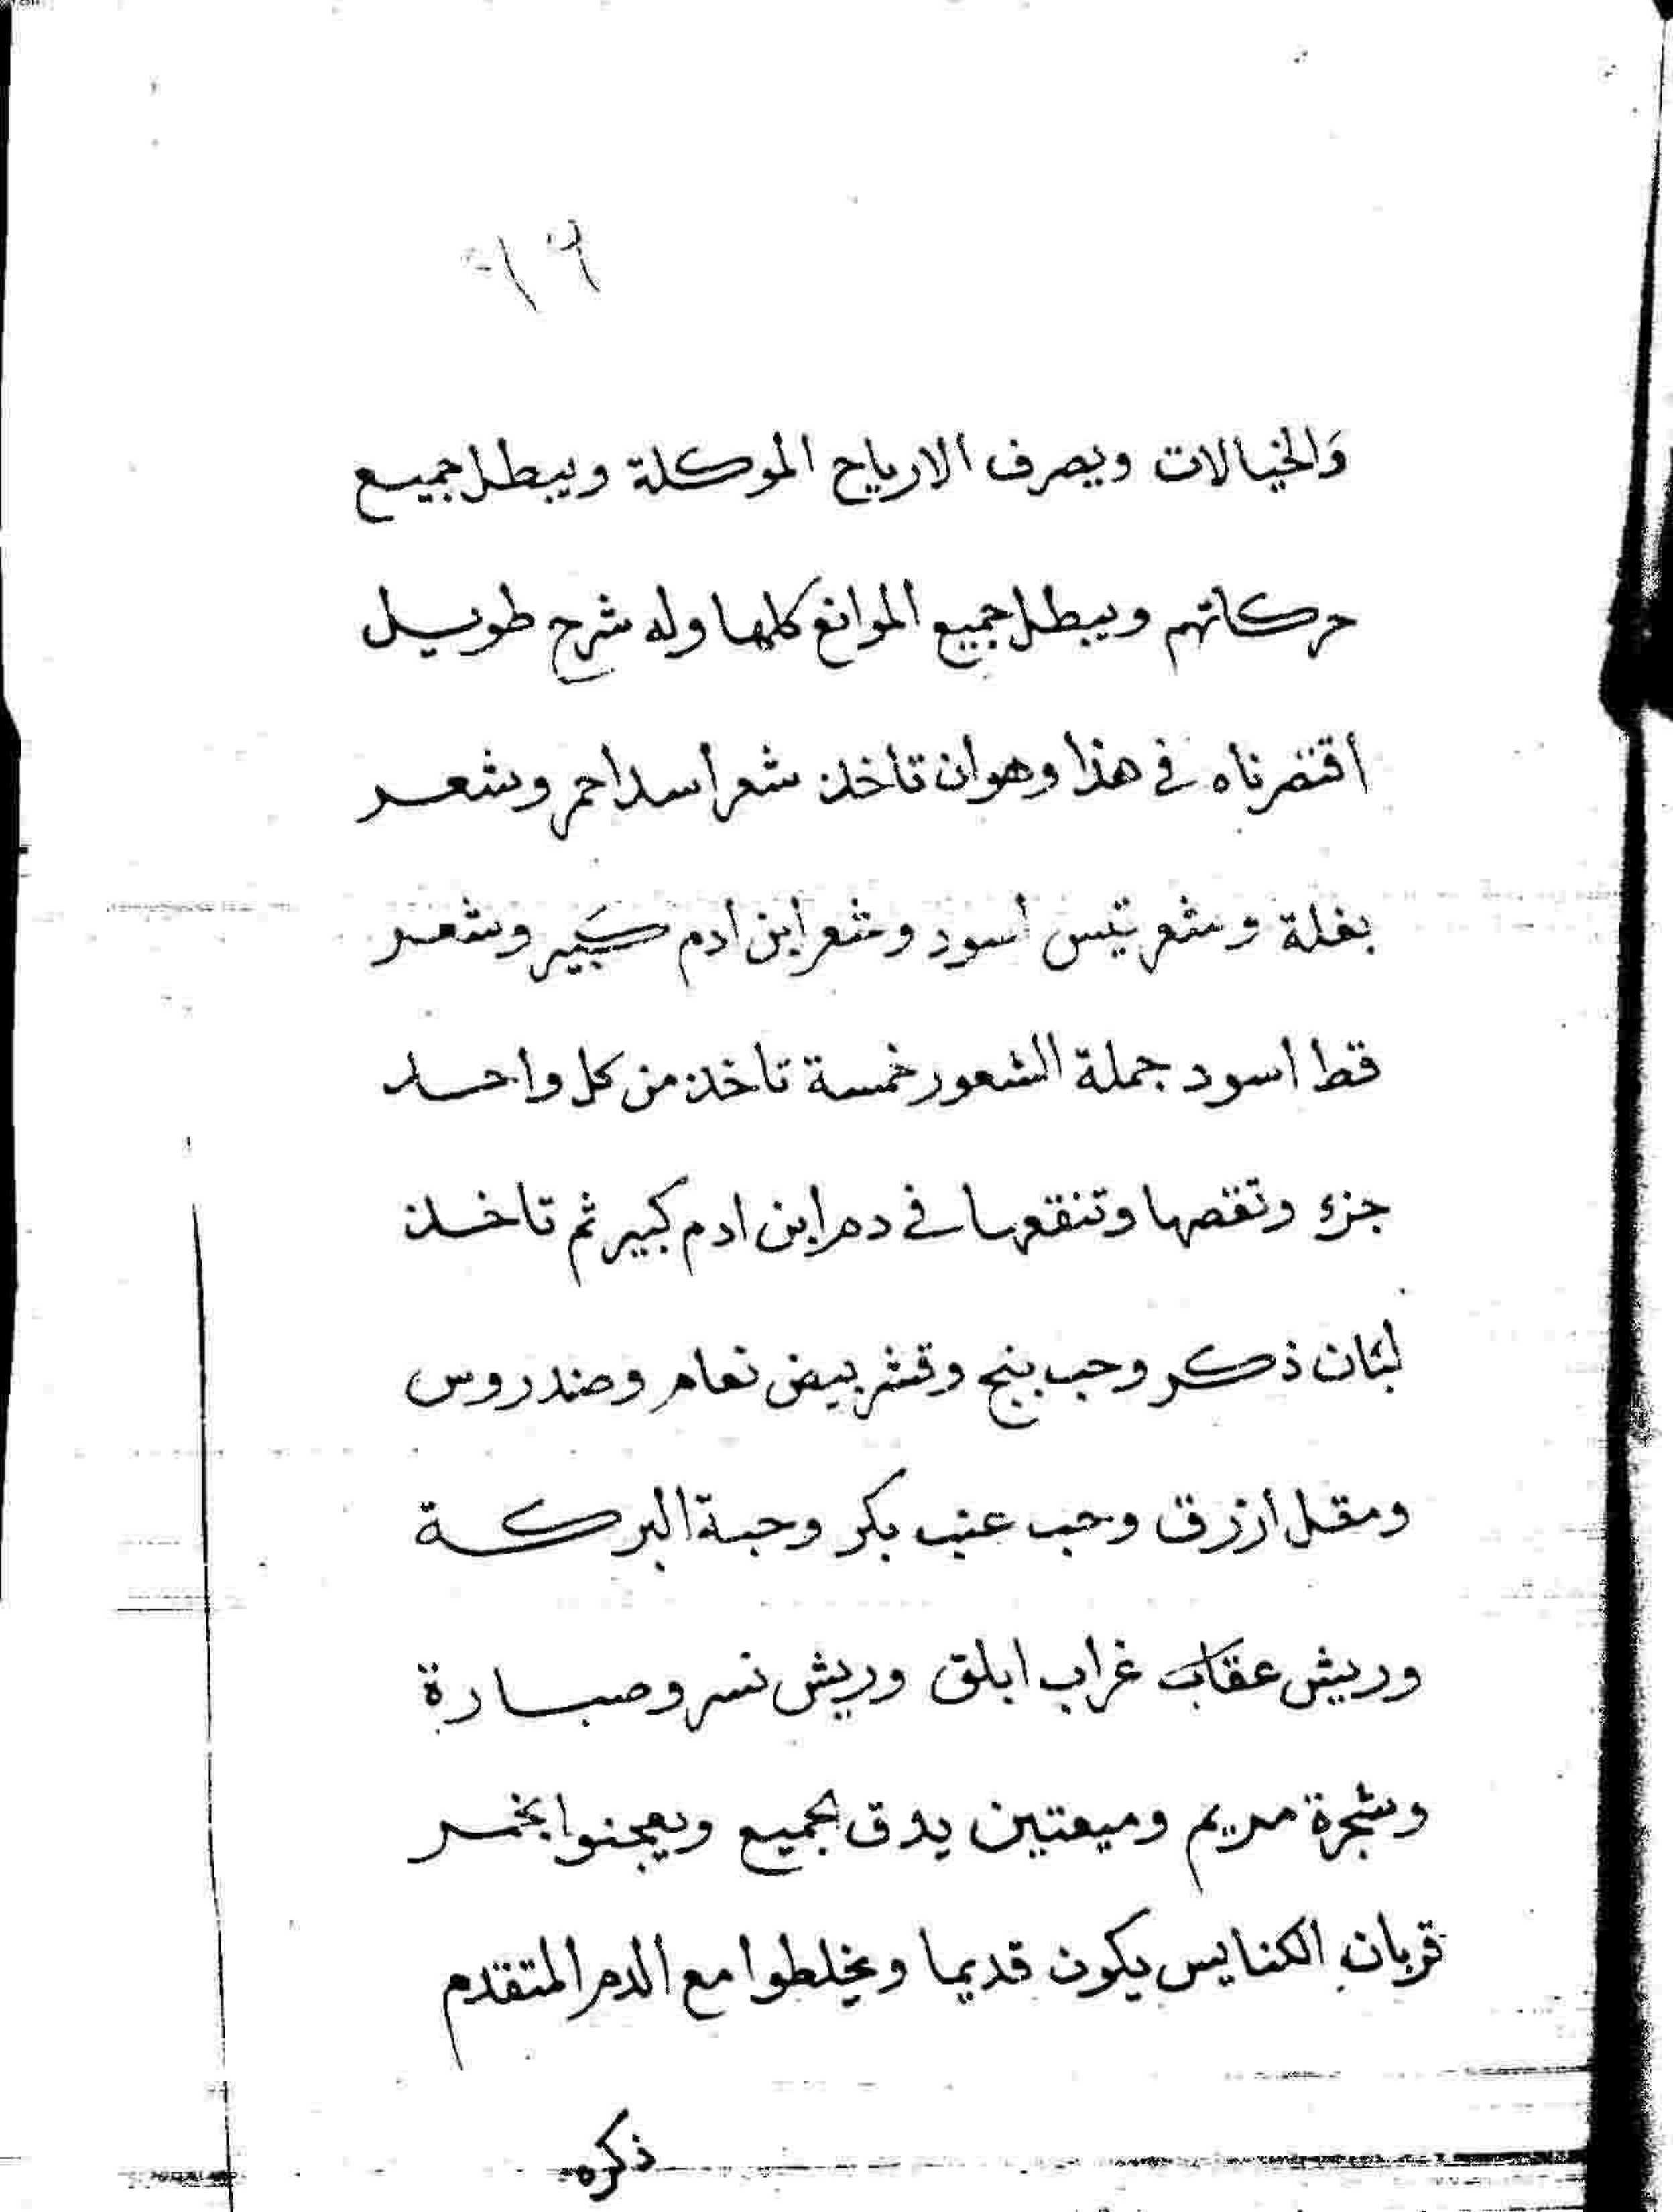 وَالخيالات ويصرف الارياح الموكلة ويبطل جميع
حركاتهم ويبطل جميع الموانع كلها وله شرح طويل
أقتصرناه في هذا وهو ان تاخذ شعر أسد احمر وشعر
بغلة وشعر تيس أسود وشعر ابن ادم كبير وشعر
قط اسود جملة الشعور خمسة تاخذ من كل واحد
جزء وتقصها وتنقعها في دم ابن ادم كبير ثم تاخذ
لبان ذكر وحب بنج وقشر بيض نعام وصندروس
ومقل ازرق وحب عنب بكر وحبة البركة
وريش عقاب غراب ابلق وريش نسر وصبارة
وشجرة مريم وميعتين يدق الجميع ويعجنوا بخمر
قربان الكنايس يكون قديما ويخلطوا مع الدم المتقدم
ذكره